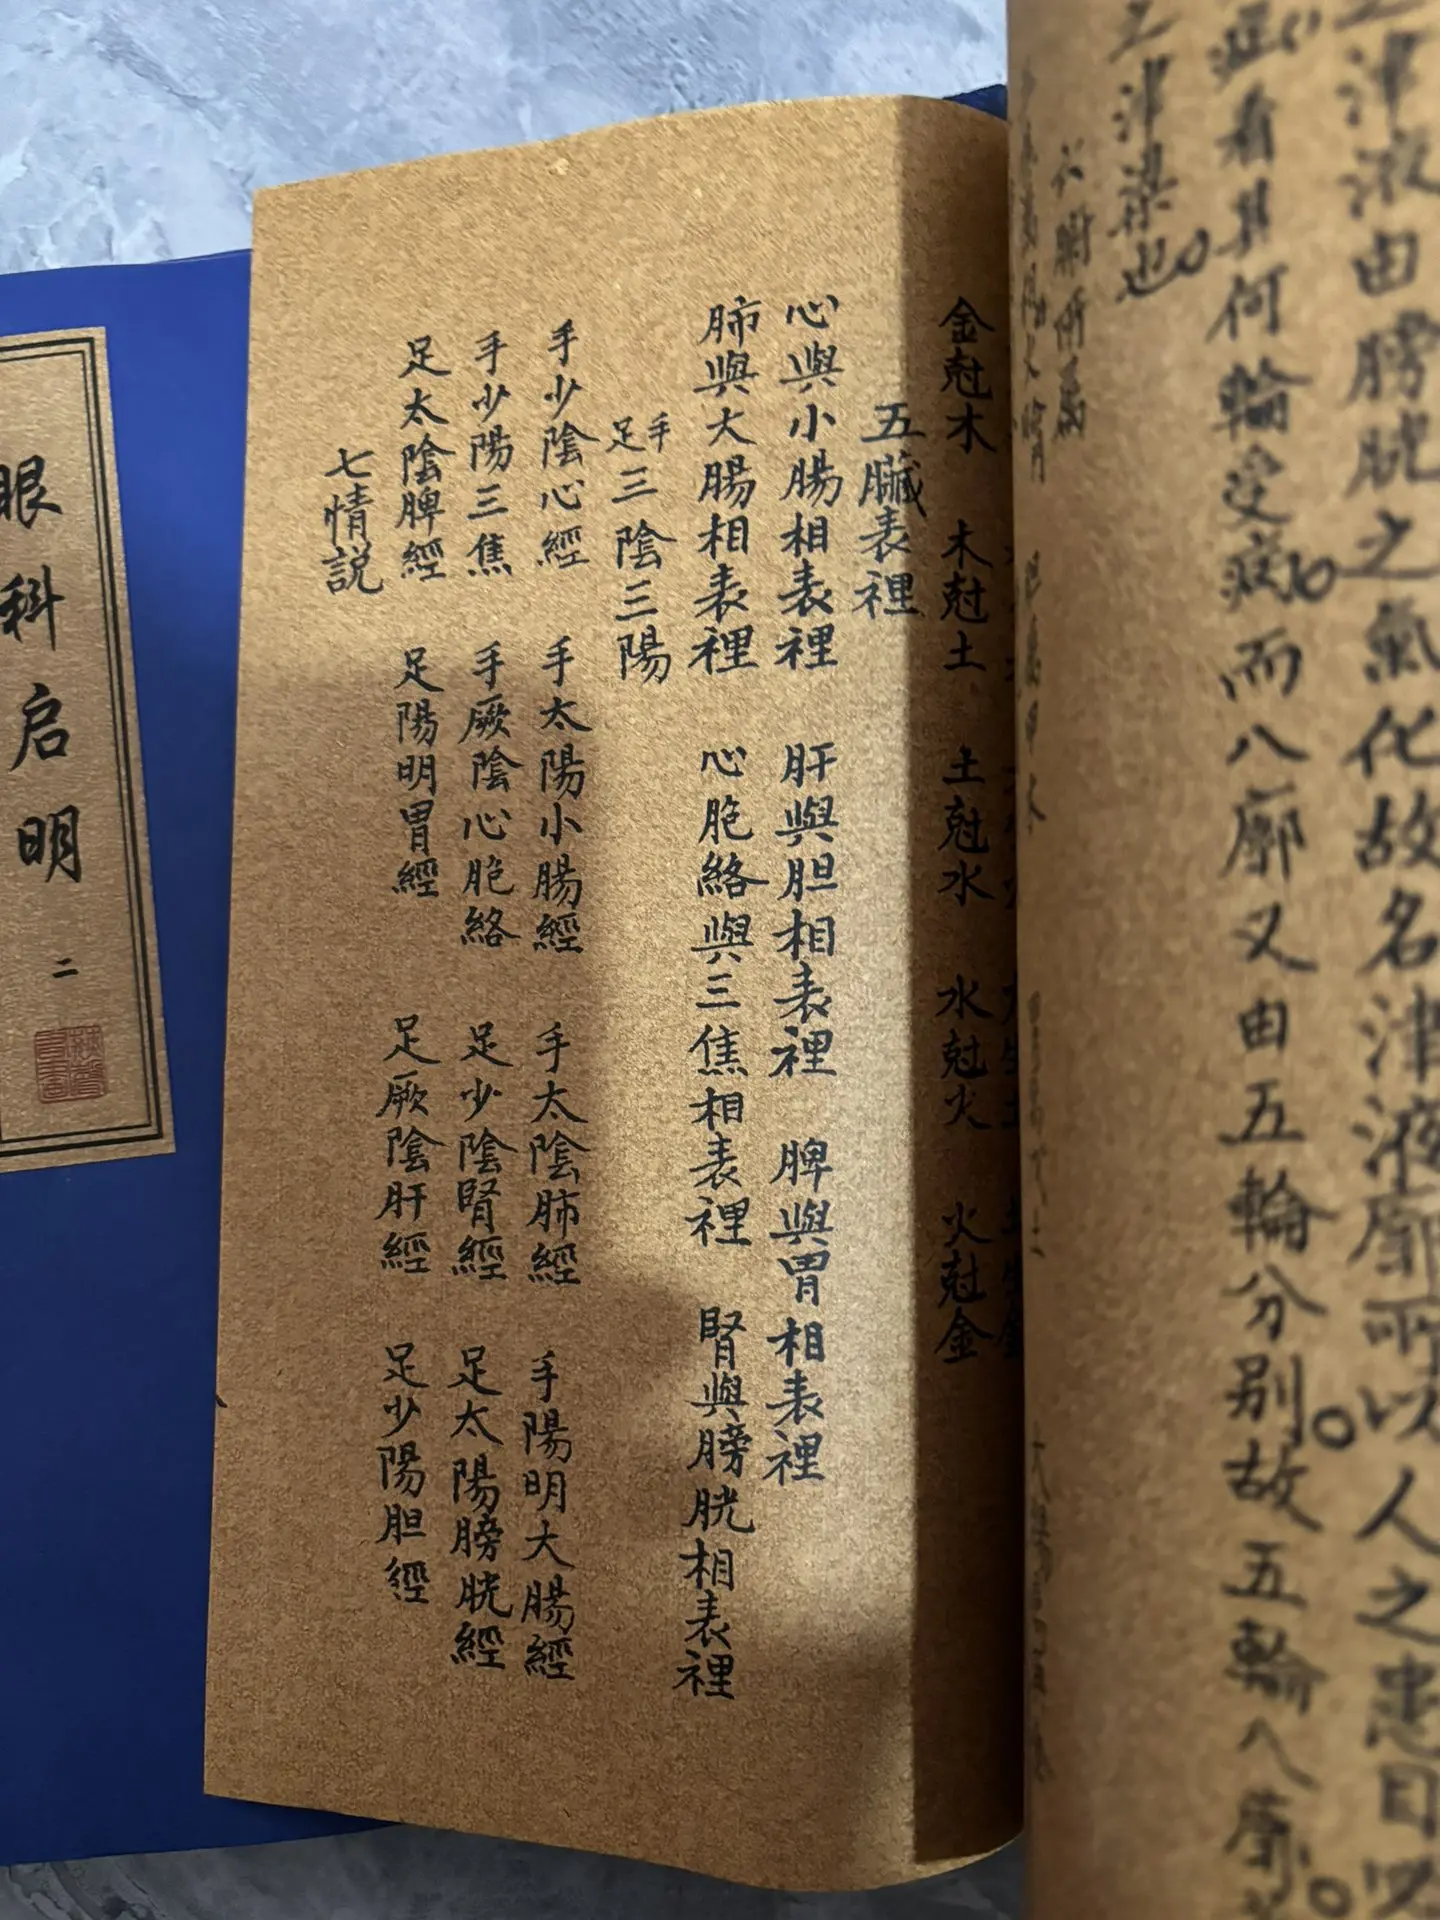 之津液由膀胱之氣化故名津液廓所以人之患目以
症看其何輪受病而八廓又由五輪分别故五輪八廓
之津梁也
六腑所屬
金尅木 木尅土 土尅水 水尅火 火尅金
五臟表裡
心與小腸相表裡 肝與胆相表裡 脾與胃相表裡
肺與大腸相表裡 心胞絡與三焦相表裡 腎與膀胱相表裡
手足三陰三陽
手少陰心經 手太陽小腸經 手太陰肺經 手陽明大腸經
手少陽三焦 手厥陰心胞絡 足少陰腎經 足太陽膀胱經
足太陰脾經 足陽明胃經 足厥陰肝經 足少陽胆經
七情説
眼科启明 二